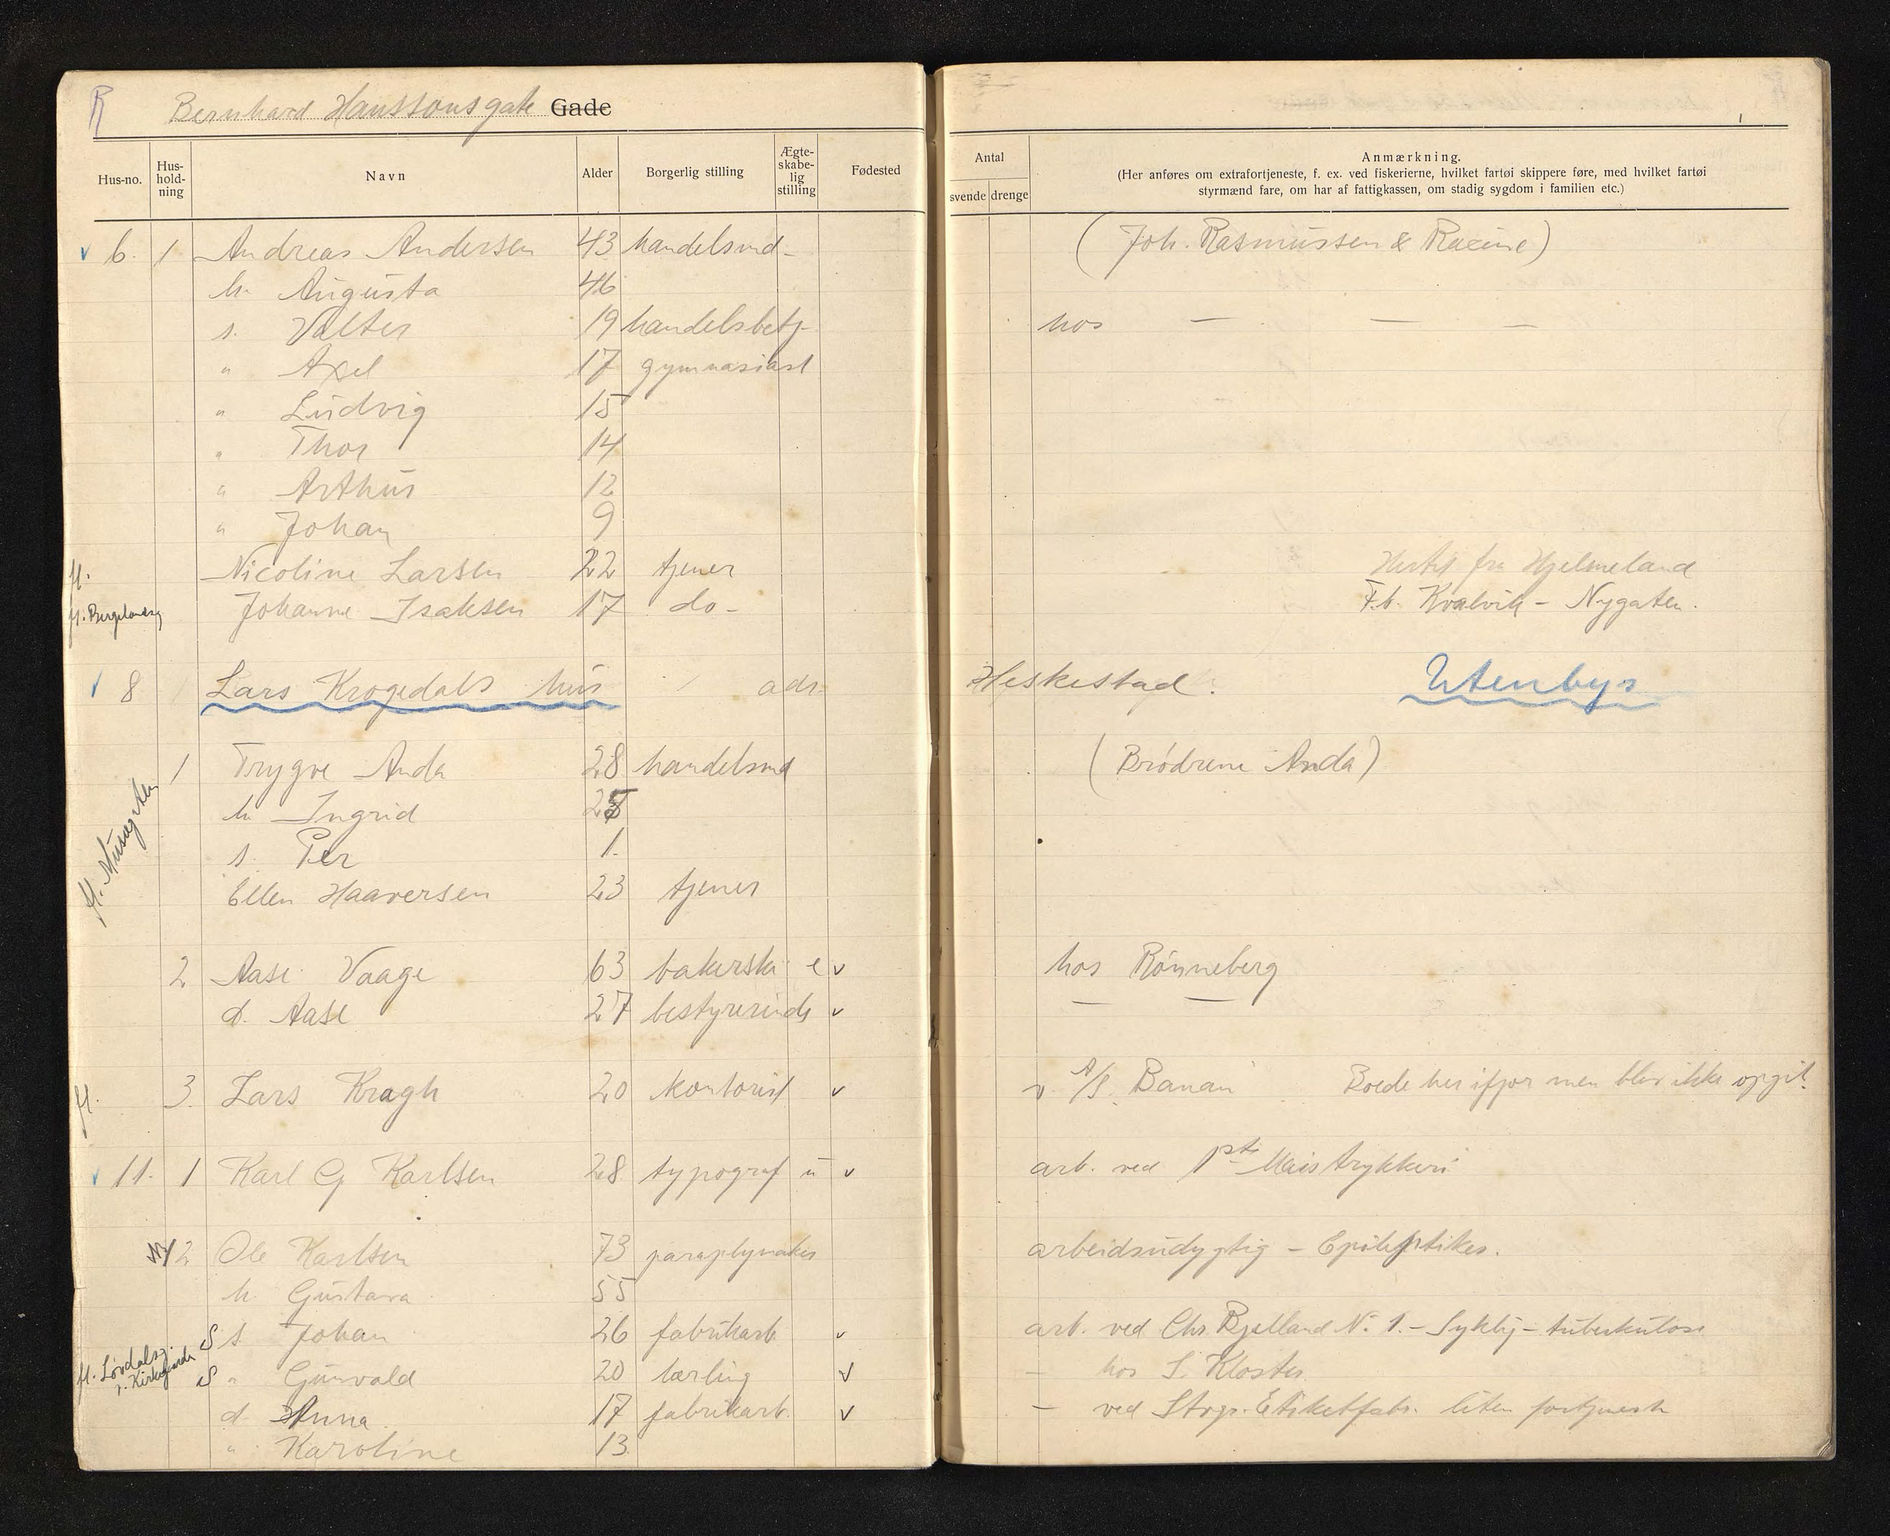 R Bernhard Hanssonsgate Gade
Hus-no. Hus-hold-ning Navn Alder Borgerlig stilling Ægte-skabe-lig stilling Fødested
Antal svende drenge
Anmærkning.
(Her anføres om extrafortjeneste, f. ex. ved fiskerierne, hvilket fartøi skippere føre, med hvilket fartøi
styrmænd fare, om har af fattigkassen, om stadig sygdom i familien etc.)
1
v 6. 1 Andreas Andersen 43 handelsmd- (Joh. Rasmussen & Racine)
h. Augusta 46
s. Valter 19 handelsbetj- hos — — —
" Axel 17 gymnasiast
" Ludvig 15
" Thor 14
" Arthur 12
" Johan 9
fl. Nicoline Larsen 22 tjener fra Hjelmeland
fl. Bergelandsg Johanne Isaksen 17 do- F.b. Kvalvik - Nygaten.
v 8 Lars Krogedals hus adr. Heskestad. Utenbys
1 Trygve Anda 28 handelsmd (Brødrene Anda)
fl. Musegaten
h Ingrid
s. Per 1.
Ellen Haaversen 23 tjener
2 Aase Vaage 63 bakerske e v hos Rønneberg
d. Aase 27 bestyrerinde v — —
fl. 3. Lars Kragh 20 kontorist v v A/S. Banan Boede her ifjor men blev ikke opgit.
v 11. 1 Karl G Karlsen 28 typograf u v arb. ved 1ste Mais trykkeri
2 Ole Karlsen 73 paraplymaker arbeidsudygtig - Epileptiker.
h. Gustava 55
S s. Johan 26 fabrikarb v arb. ved Chr Bjelland No 1. - Sykelig - tuberkuløse
fl. Løvdalsg.
S " Gunvald 20 lærling v - hos S. Kloster.
d. Anna 17 fabrikarb. v - ved Stvgr. Etiketfabr. liten fortjeneste
" Karoline 13